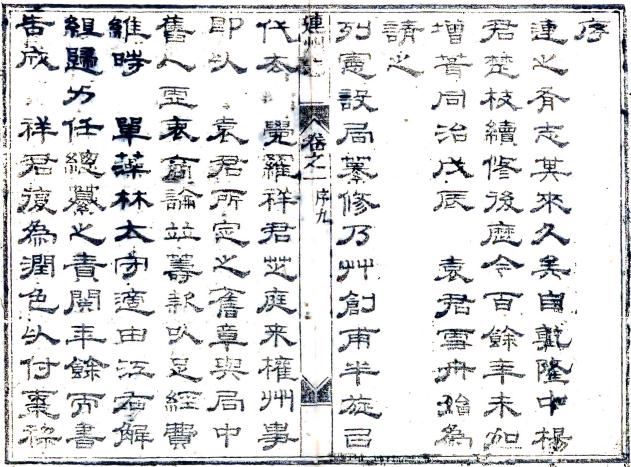 序
連之有志其來久矣自乾隆中楊
君楚枝續修後歷今百餘年未加
增葺同治戊辰　袁君雪舟始為
請之
列憲設局纂修乃艸創甫半旋已
連州　卷之一　序九
代去　覺羅祥君芝庭来權州事
即以　袁君所定之舊章與局中
舊人亟衷商論並籌款以足經費
維時　單藻林太守適由江右解
組歸乃任總纂之責閱年餘而書
告成　祥君復為潤色以付棗梓